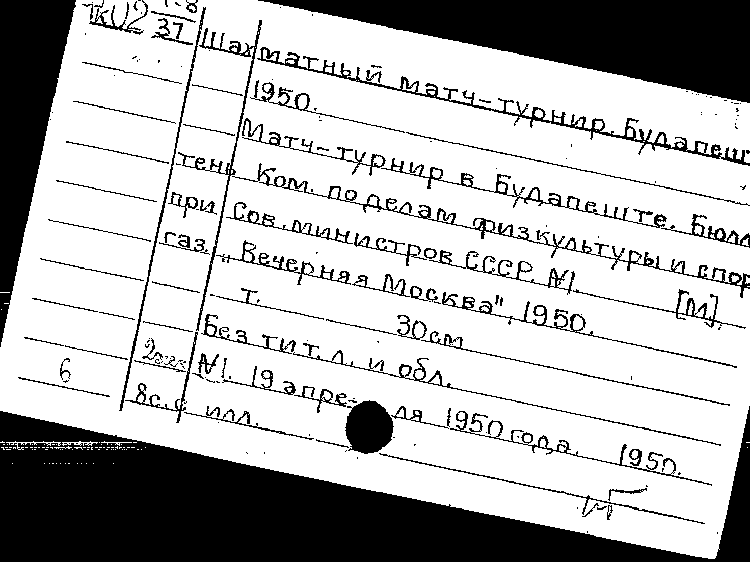 37
Шахматный матч-турнир. Будапешт
1950.
Матч-турнир в Будапеште. Бюлл
тень Ком. по делам физкультуры и спор
при Сов. министров СССР. №1. [М],
газ. „Вечерняя Москва", 1950.
т. 30см
Без тит. л. и обл.
2экз №1. 19 апре- ля 1950 года. 1950.
6 8с. с илл.